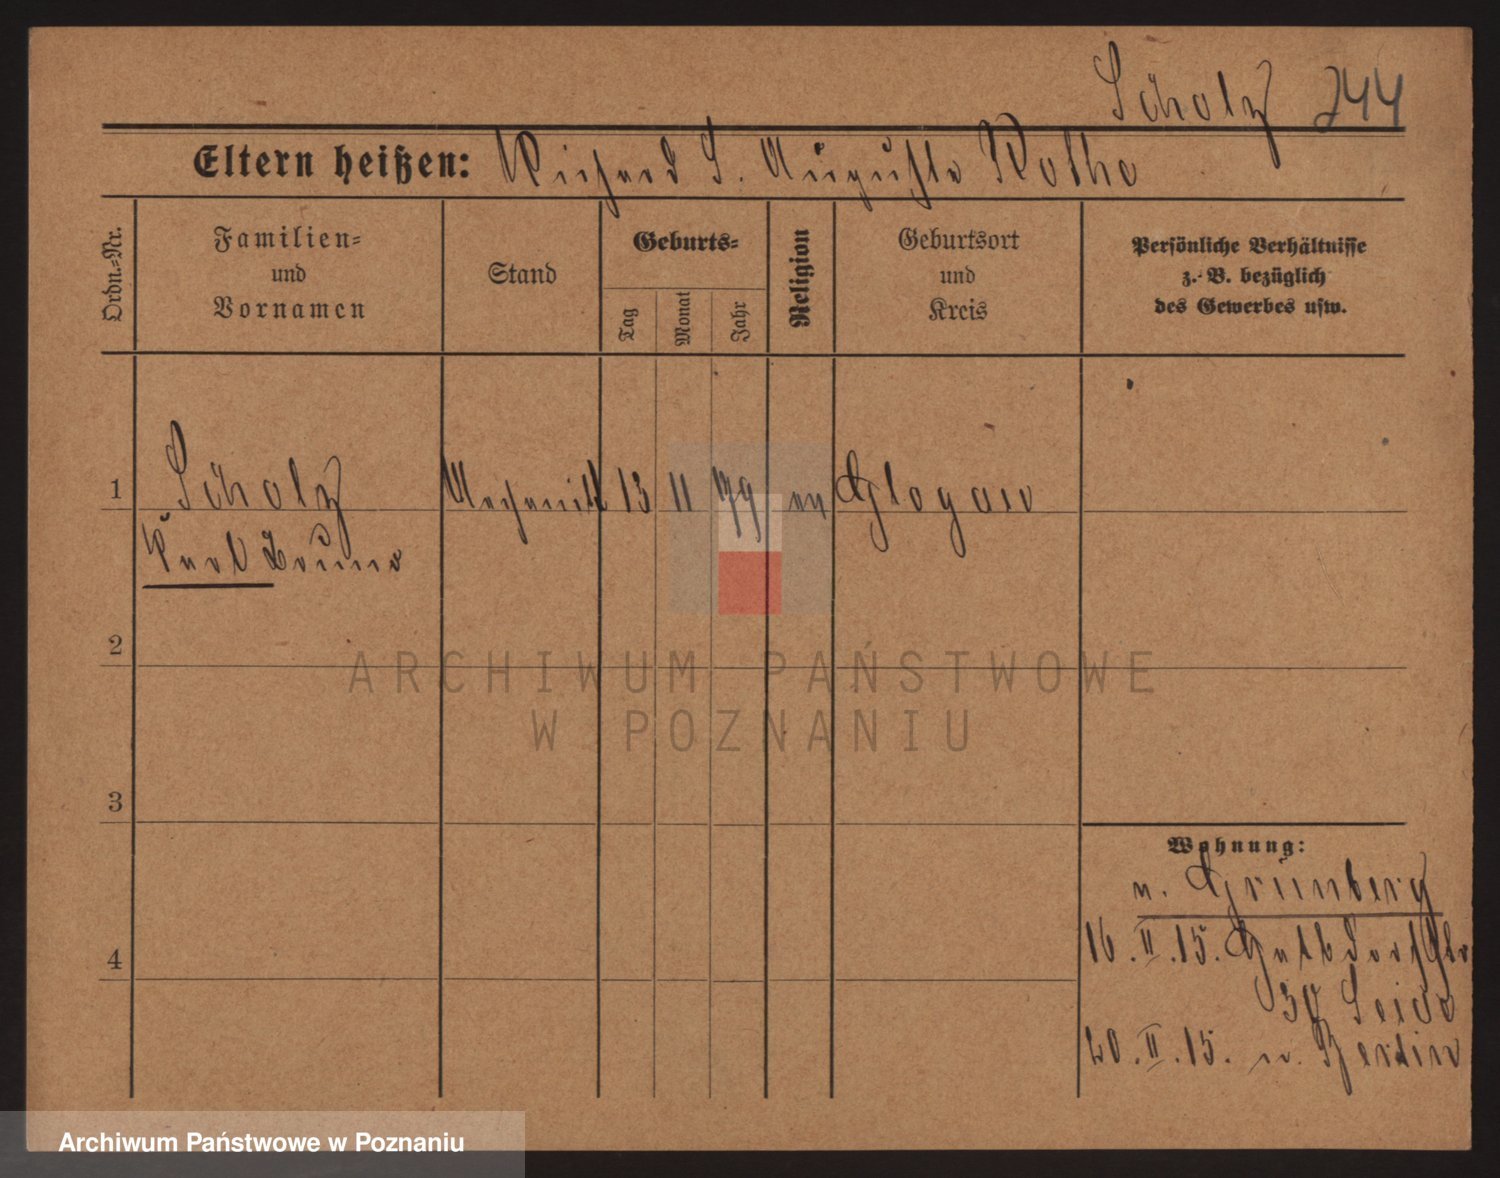 Scholz 244
Eltern heißen: Richard S. Auguste Rothe
Ordn.-Nr.
Familien-
und
Vornamen
Stand
Geburts-
Tag
Monat
Jahr
Religion
Geburtsort
und
Kreis
Persönliche Verhältnisse
z. B. bezüglich
des Gewerbes usw.
1 Scholz Mechanik 13 11 79 ev Glogau
Kurt Bruno
2
3
4
Wohnung:
n. Grünberg
16. II. 15.
30
20. II. 15. n. Berlin
ARCHIWUM PAŃSTWOWE
W POZNANIU
Archiwum Państwowe w Poznaniu